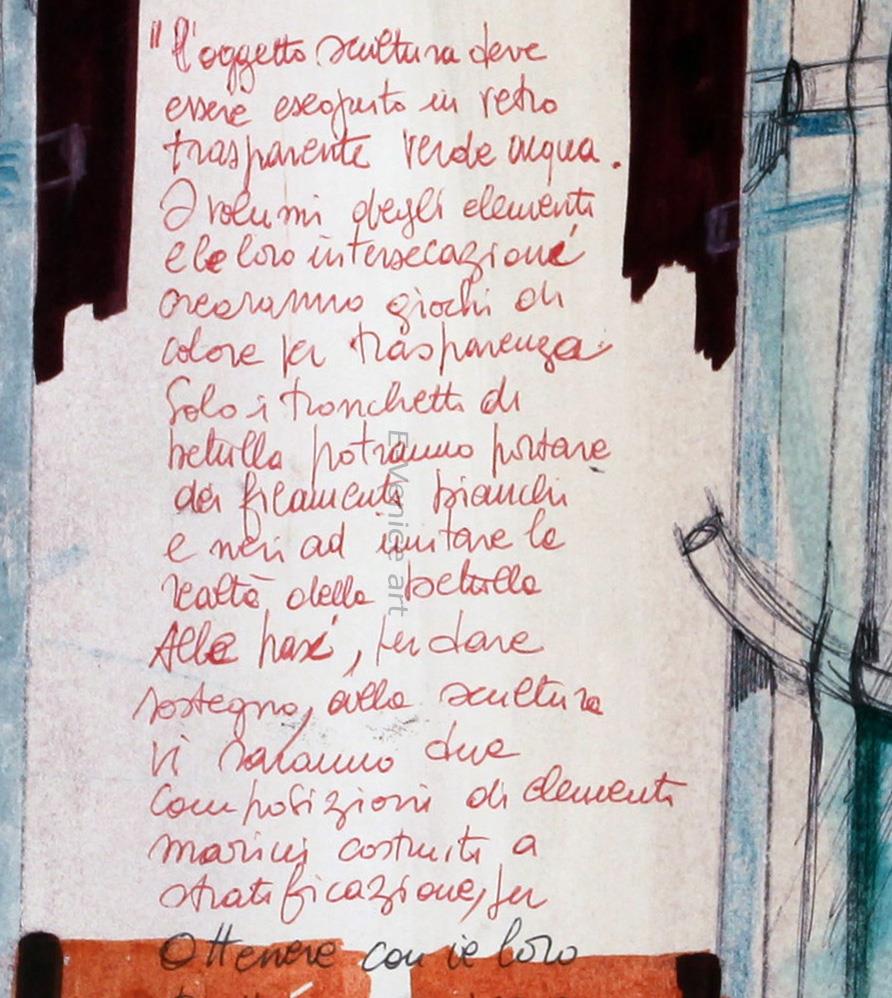 "l'oggetto scultura deve
essere eseguito in vetro
trasparente verde acqua.
I volumi degli elementi
e le loro intersecazioni
creeranno giochi di
colore per trasparenza
Solo i tronchetti di
betulla potranno portare
dei filamenti bianchi
e neri ad imitare la
realtà della betulla
Alla base, per dare
sostegno, alla scultura
vi saranno due
composizioni di elementi
marini costruiti a
stratificazione, per
Ottenere con le loro
EVenice art